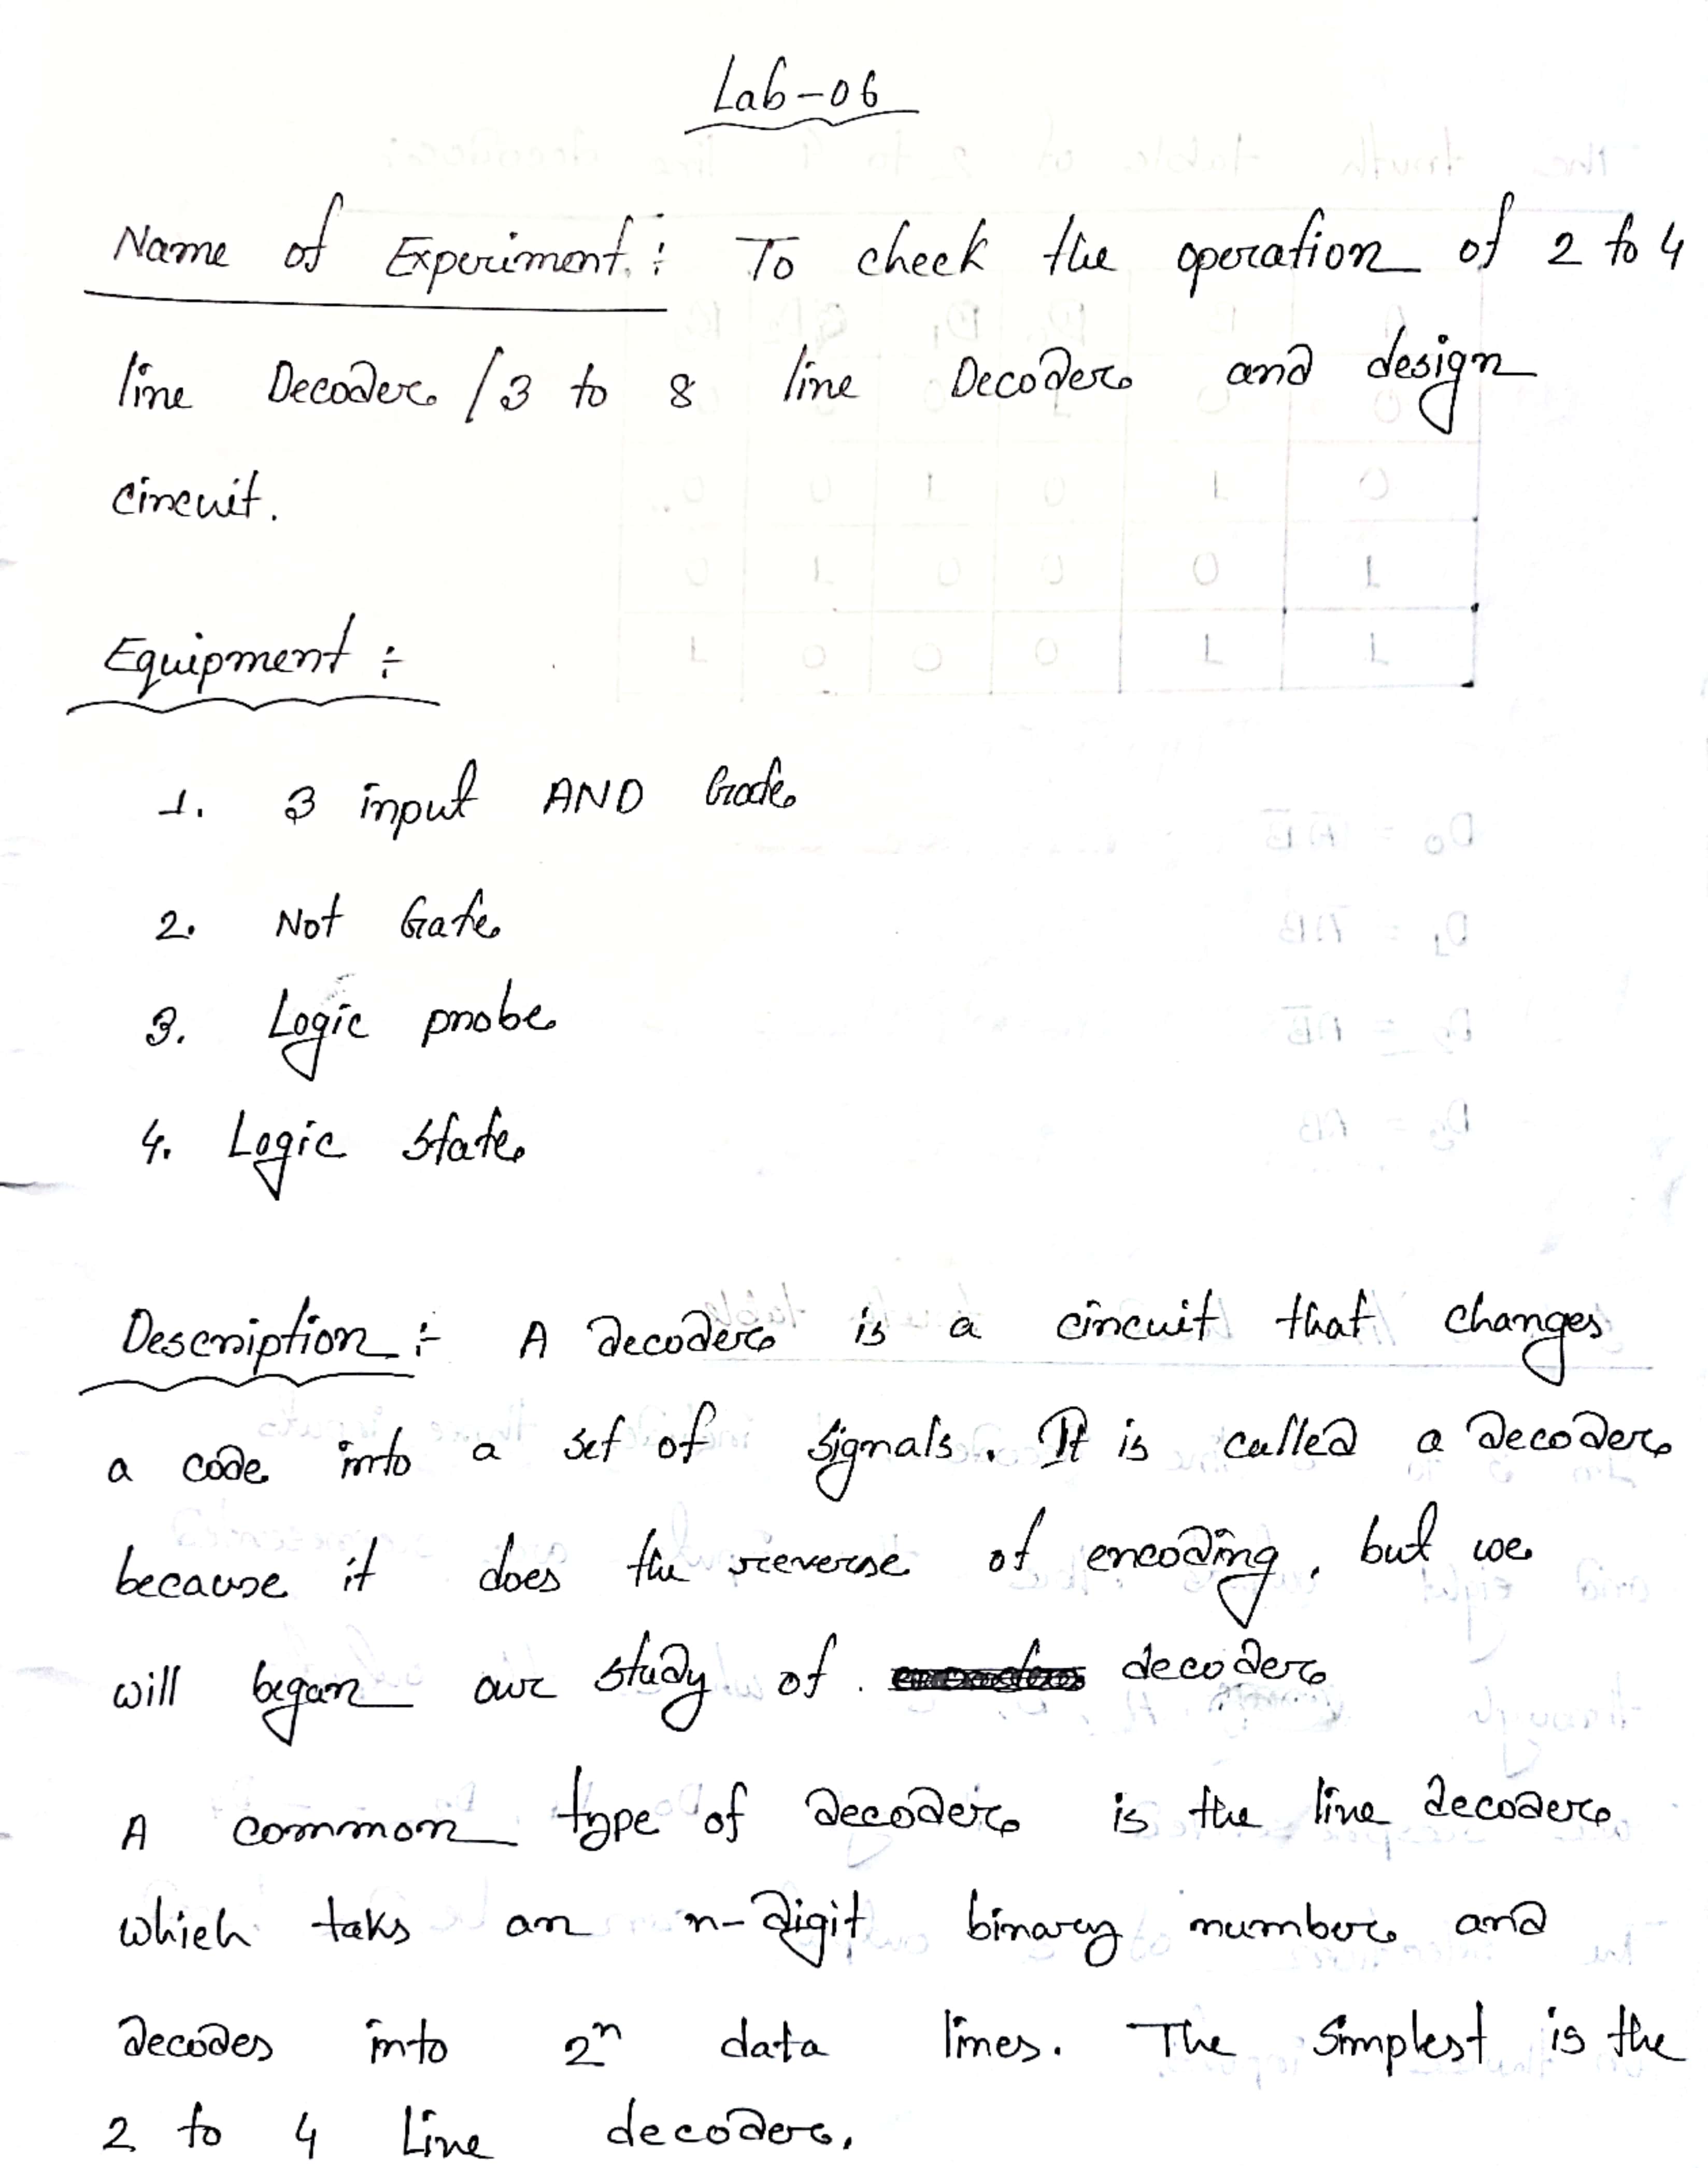 Lab-06
Name of Experiment: To check the operation of 2 to 4
line Decoder / 3 to 8 line Decoder and design
circuit.
Equipment:
1. 3 input AND Gate
2. Not Gate
3. Logic probe
4. Logic State
Description:- A decoder is a circuit that changes
a code into a set of signals. It is called a decoder
because it does the reverse of encoding, but we
will began our study of decoder
A common type of decoder is the line decoder
which taks an n-digit binary number and
decodes into 2ⁿ data lines. The simplest is the
2 to 4 Line decoder.